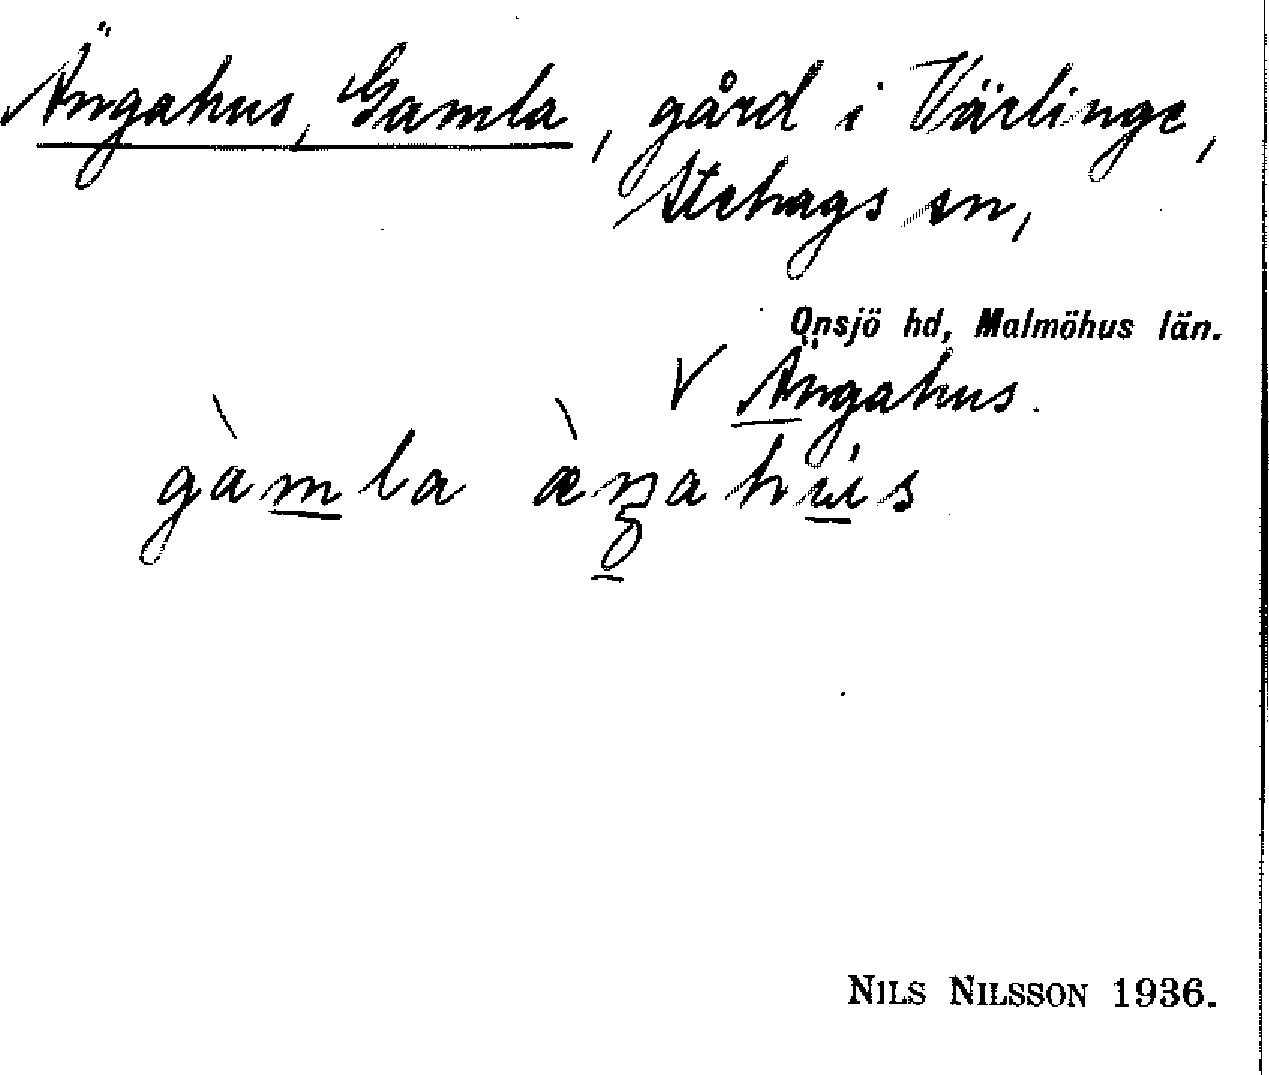 Ängahus, Gamla, gård i Värlinge,
Stehags sn,
Onsjö hd, Malmöhus län.
V Ängahus.
gàmla æ̀ŋahús
NILS NILSSON 1936.